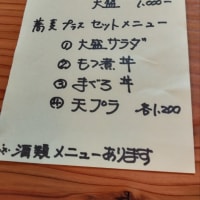 大盛 1.000ー
蕎麦プラスセットメニュー
① 大盛サラダ
② もつ煮丼
③ まぐろ丼
④ 天プラ 各1.200
酒類メニューあります